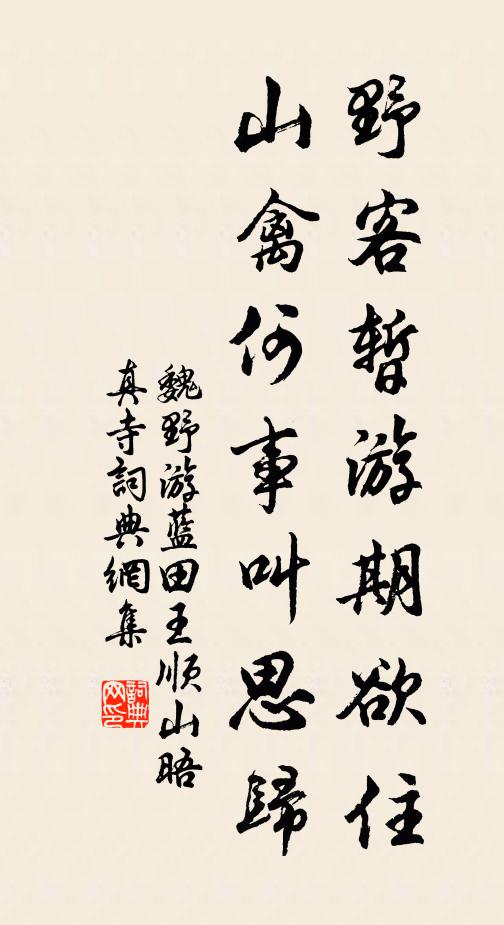 野客暫游期欲住
山禽何事叫思歸
魏野游藍田王順山晤
真寺詞典網集
詞典
网印